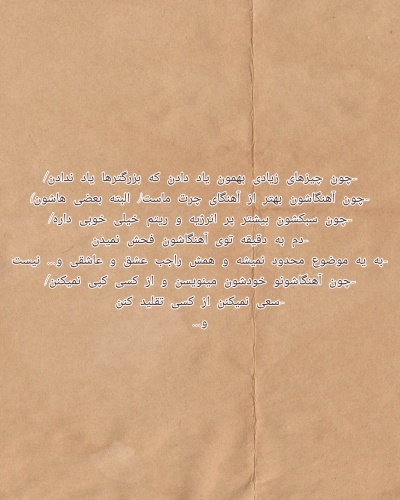 -چون چیزهای زیادی بهمون یاد دادن که بزرگترها یاد ندادن/
-چون آهنگاشون بهتر از آهنگای چرت ماست/ البته بعضی هاشون)
-چون سبکشون بیشتر پر انرژیه و ریتم خیلی خوبی داره/
-دم به دقیقه توی آهنگاشون فحش نمیدن
-به یه موضوع محدود نمیشه و همش راجب عشق و عاشقی و... نیست
-چون آهنگاشونو خودشون مینویسن و از کسی کپی نمیکنن/
-سعی نمیکنن از کسی تقلید کنن
و...